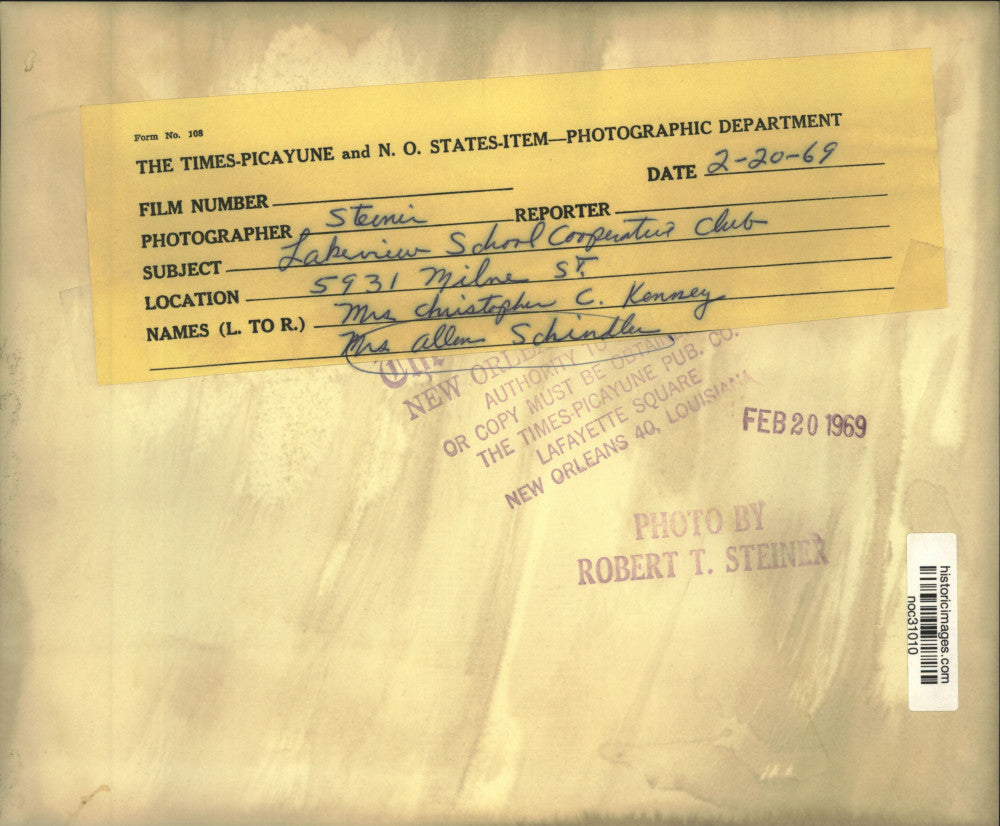 Form No. 108
THE TIMES-PICAYUNE and N. O. STATES-ITEM—PHOTOGRAPHIC DEPARTMENT
DATE 2-20-69
FILM NUMBER
PHOTOGRAPHER Steiner REPORTER
SUBJECT Lakeview School Cooperative Club
LOCATION 5931 Milne St
NAMES (L. TO R.) Mrs Christopher C. Kenney
Mrs Allen Schindler
NEW ORLE
AUTHORITY TO
OR COPY MUST BE OBTAIN
THE TIMES-PICAYUNE PUB. CO.
LAFAYETTE SQUARE
NEW ORLEANS 40, LOUISIANA
FEB 20 1969
PHOTO BY
ROBERT T. STEINER
historicimages.com
noc31010